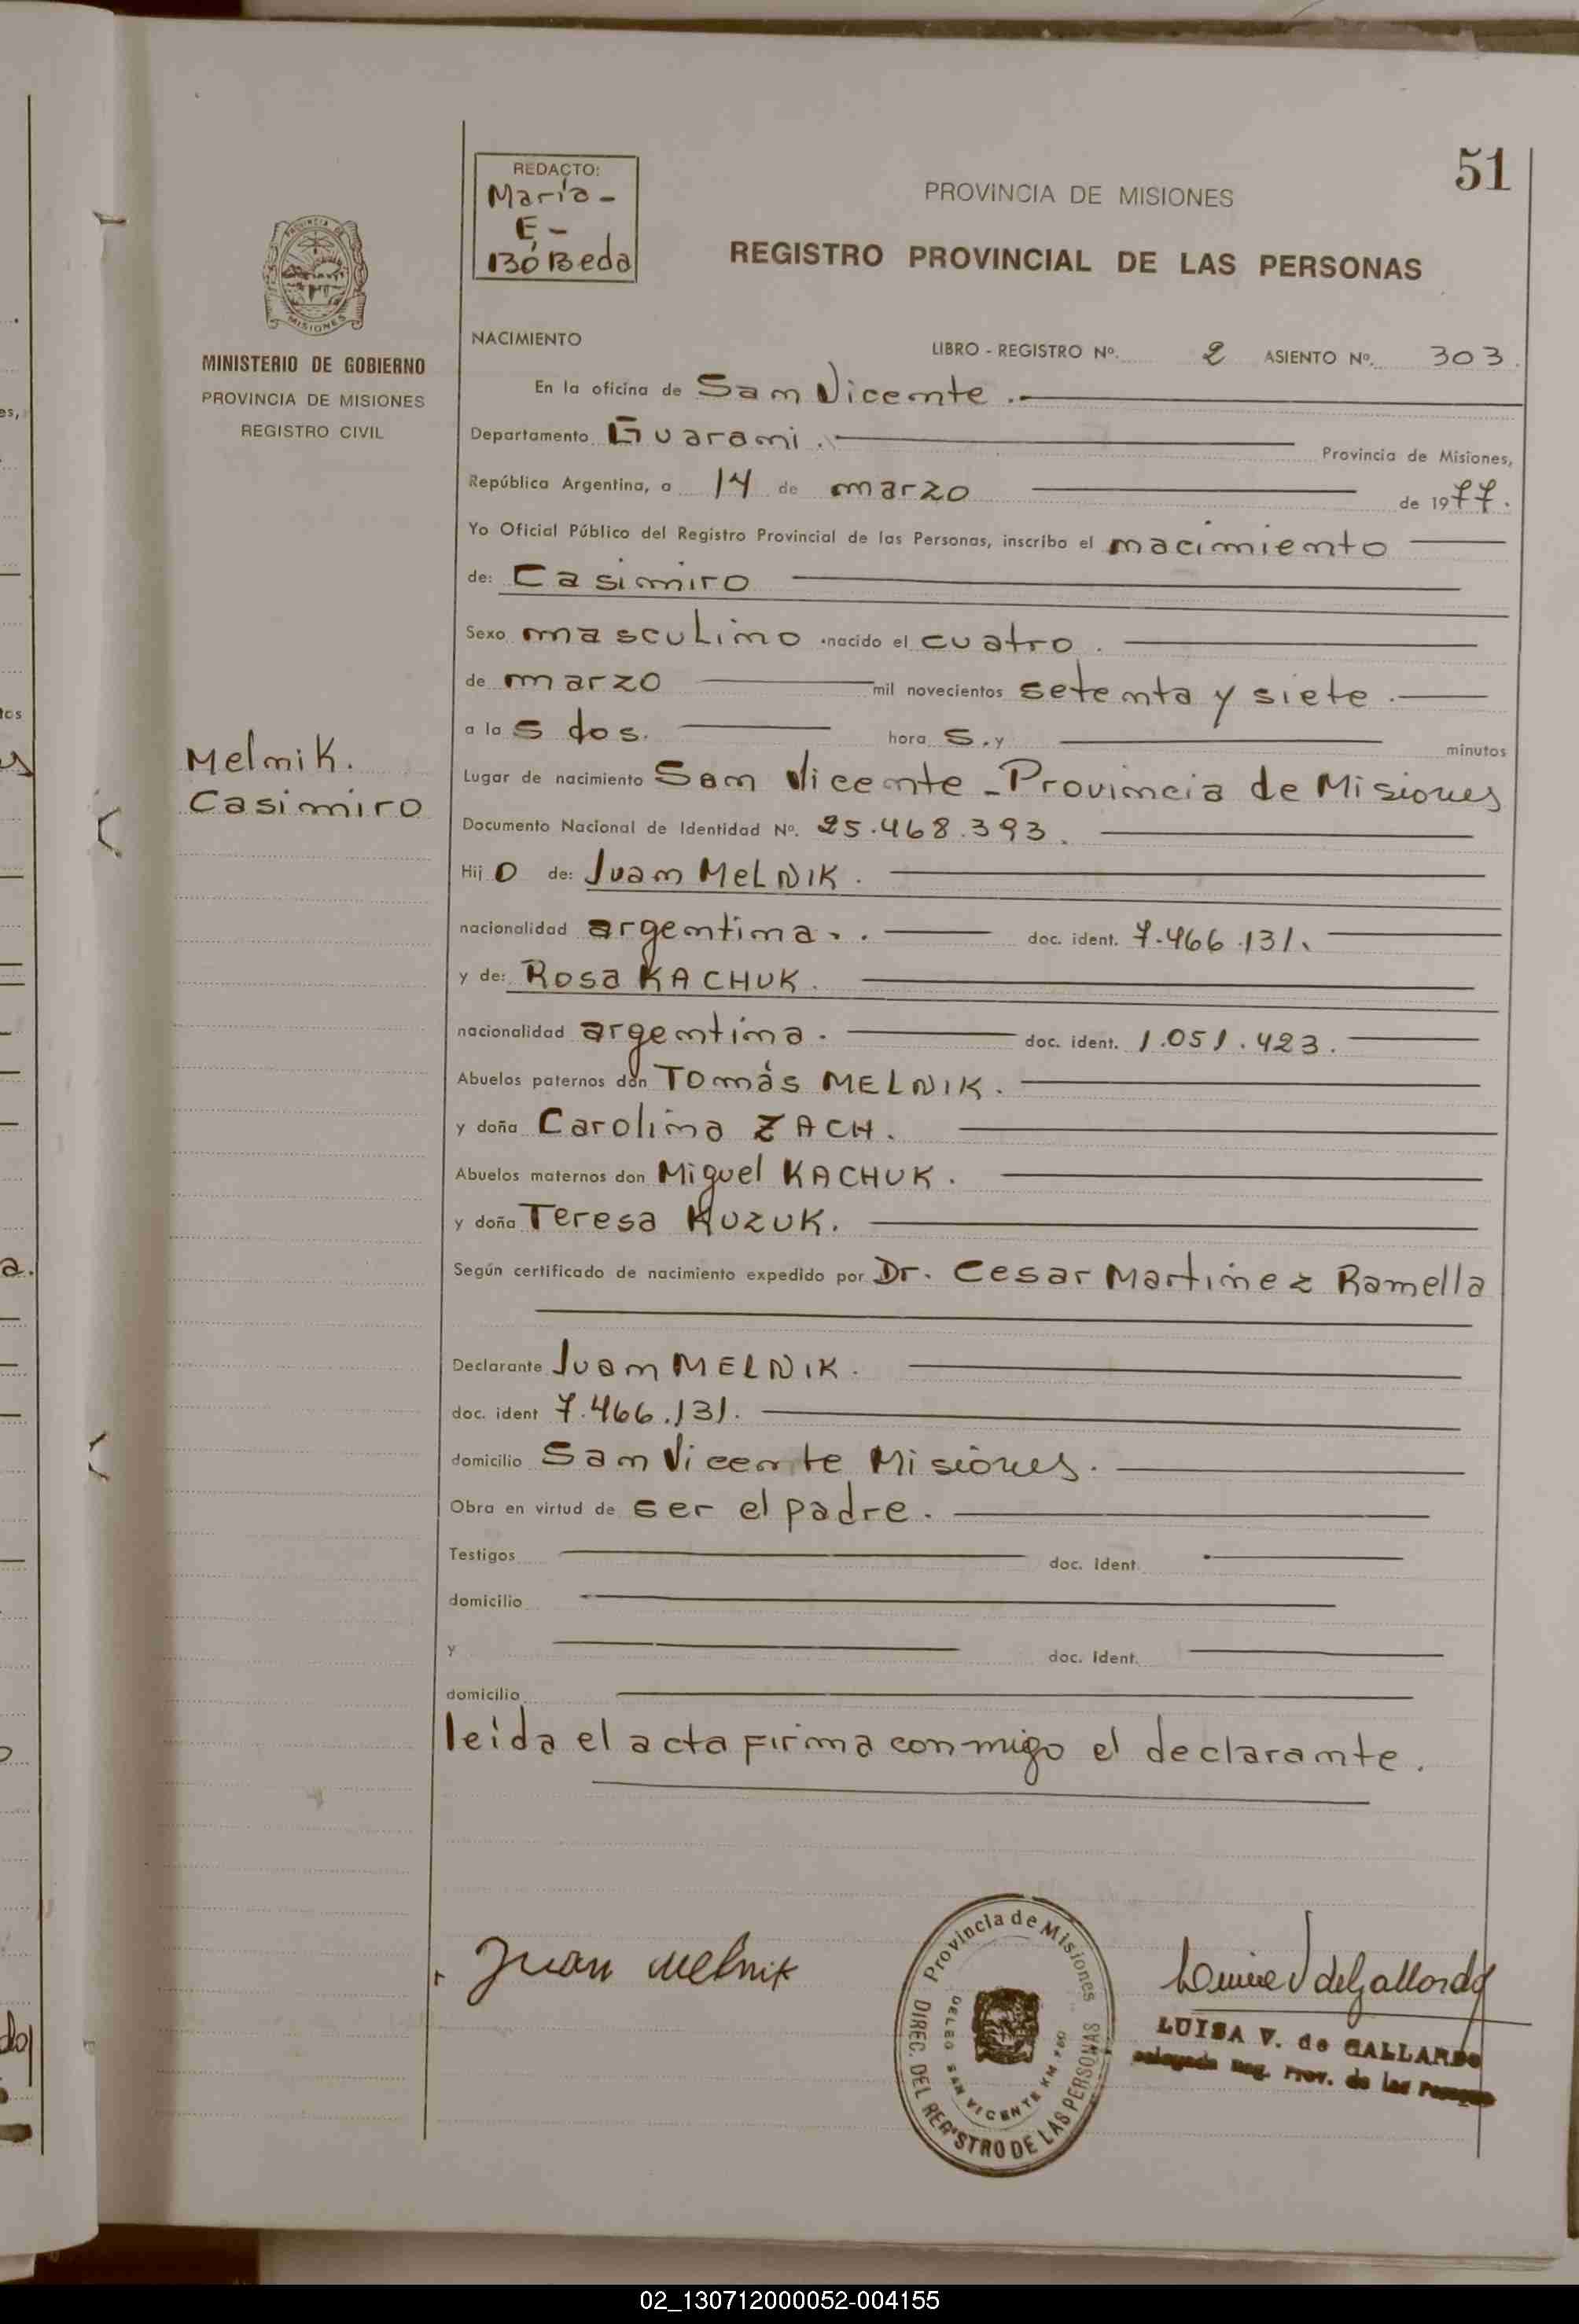 51
REDACTO:
Maria -
E, -
Bóbeda
PROVINCIA DE MISIONES
REGISTRO PROVINCIAL DE LAS PERSONAS
PROVINCIA DE
MISIONES
MINISTERIO DE GOBIERNO
PROVINCIA DE MISIONES
REGISTRO CIVIL
NACIMIENTO
LIBRO - REGISTRO Nº. 2 ASIENTO Nº. 303
En la oficina de San Vicente .-
Departamento Guarani . Provincia de Misiones,
República Argentina, a 14 de marzo de 1977.
Yo Oficial Público del Registro Provincial de las Personas, inscribo el nacimiento
de: Casimiro
Sexo masculino nacido el cuatro .
de marzo mil novecientos setenta y siete .
a las dos. horas. y minutos
Melnik.
Casimiro
Lugar de nacimiento San Vicente - Provincia de Misiones
Documento Nacional de Identidad Nº. 25.468.393.
Hijo de: Juan MELNIK .
nacionalidad argentina . . doc. ident. 7.466.131.
y de: Rosa KACHUK .
nacionalidad argentina . doc. ident. 1.051.423.
Abuelos paternos don Tomás MELNIK .
y doña Carolina ZACH .
Abuelos maternos don Miguel KACHUK .
y doña Teresa KUZUK.
Según certificado de nacimiento expedido por Dr. Cesar Martinez Ramella
Declarante Juan MELNIK .
doc. ident 7.466.131.
domicilio San Vicente Misiones .
Obra en virtud de ser el padre .
Testigos doc. ident.
domicilio
y doc. ident.
domicilio
leida el acta firma conmigo el declarante .
Juan Melnik
Provincia de Misiones
DIREC. DEL REGISTRO DE LAS PERSONAS
DELEG SAN VICENTE KM
LUISA V. de GALLARDO
Delegada Reg. Prov. de las Personas
02_130712000052-004155